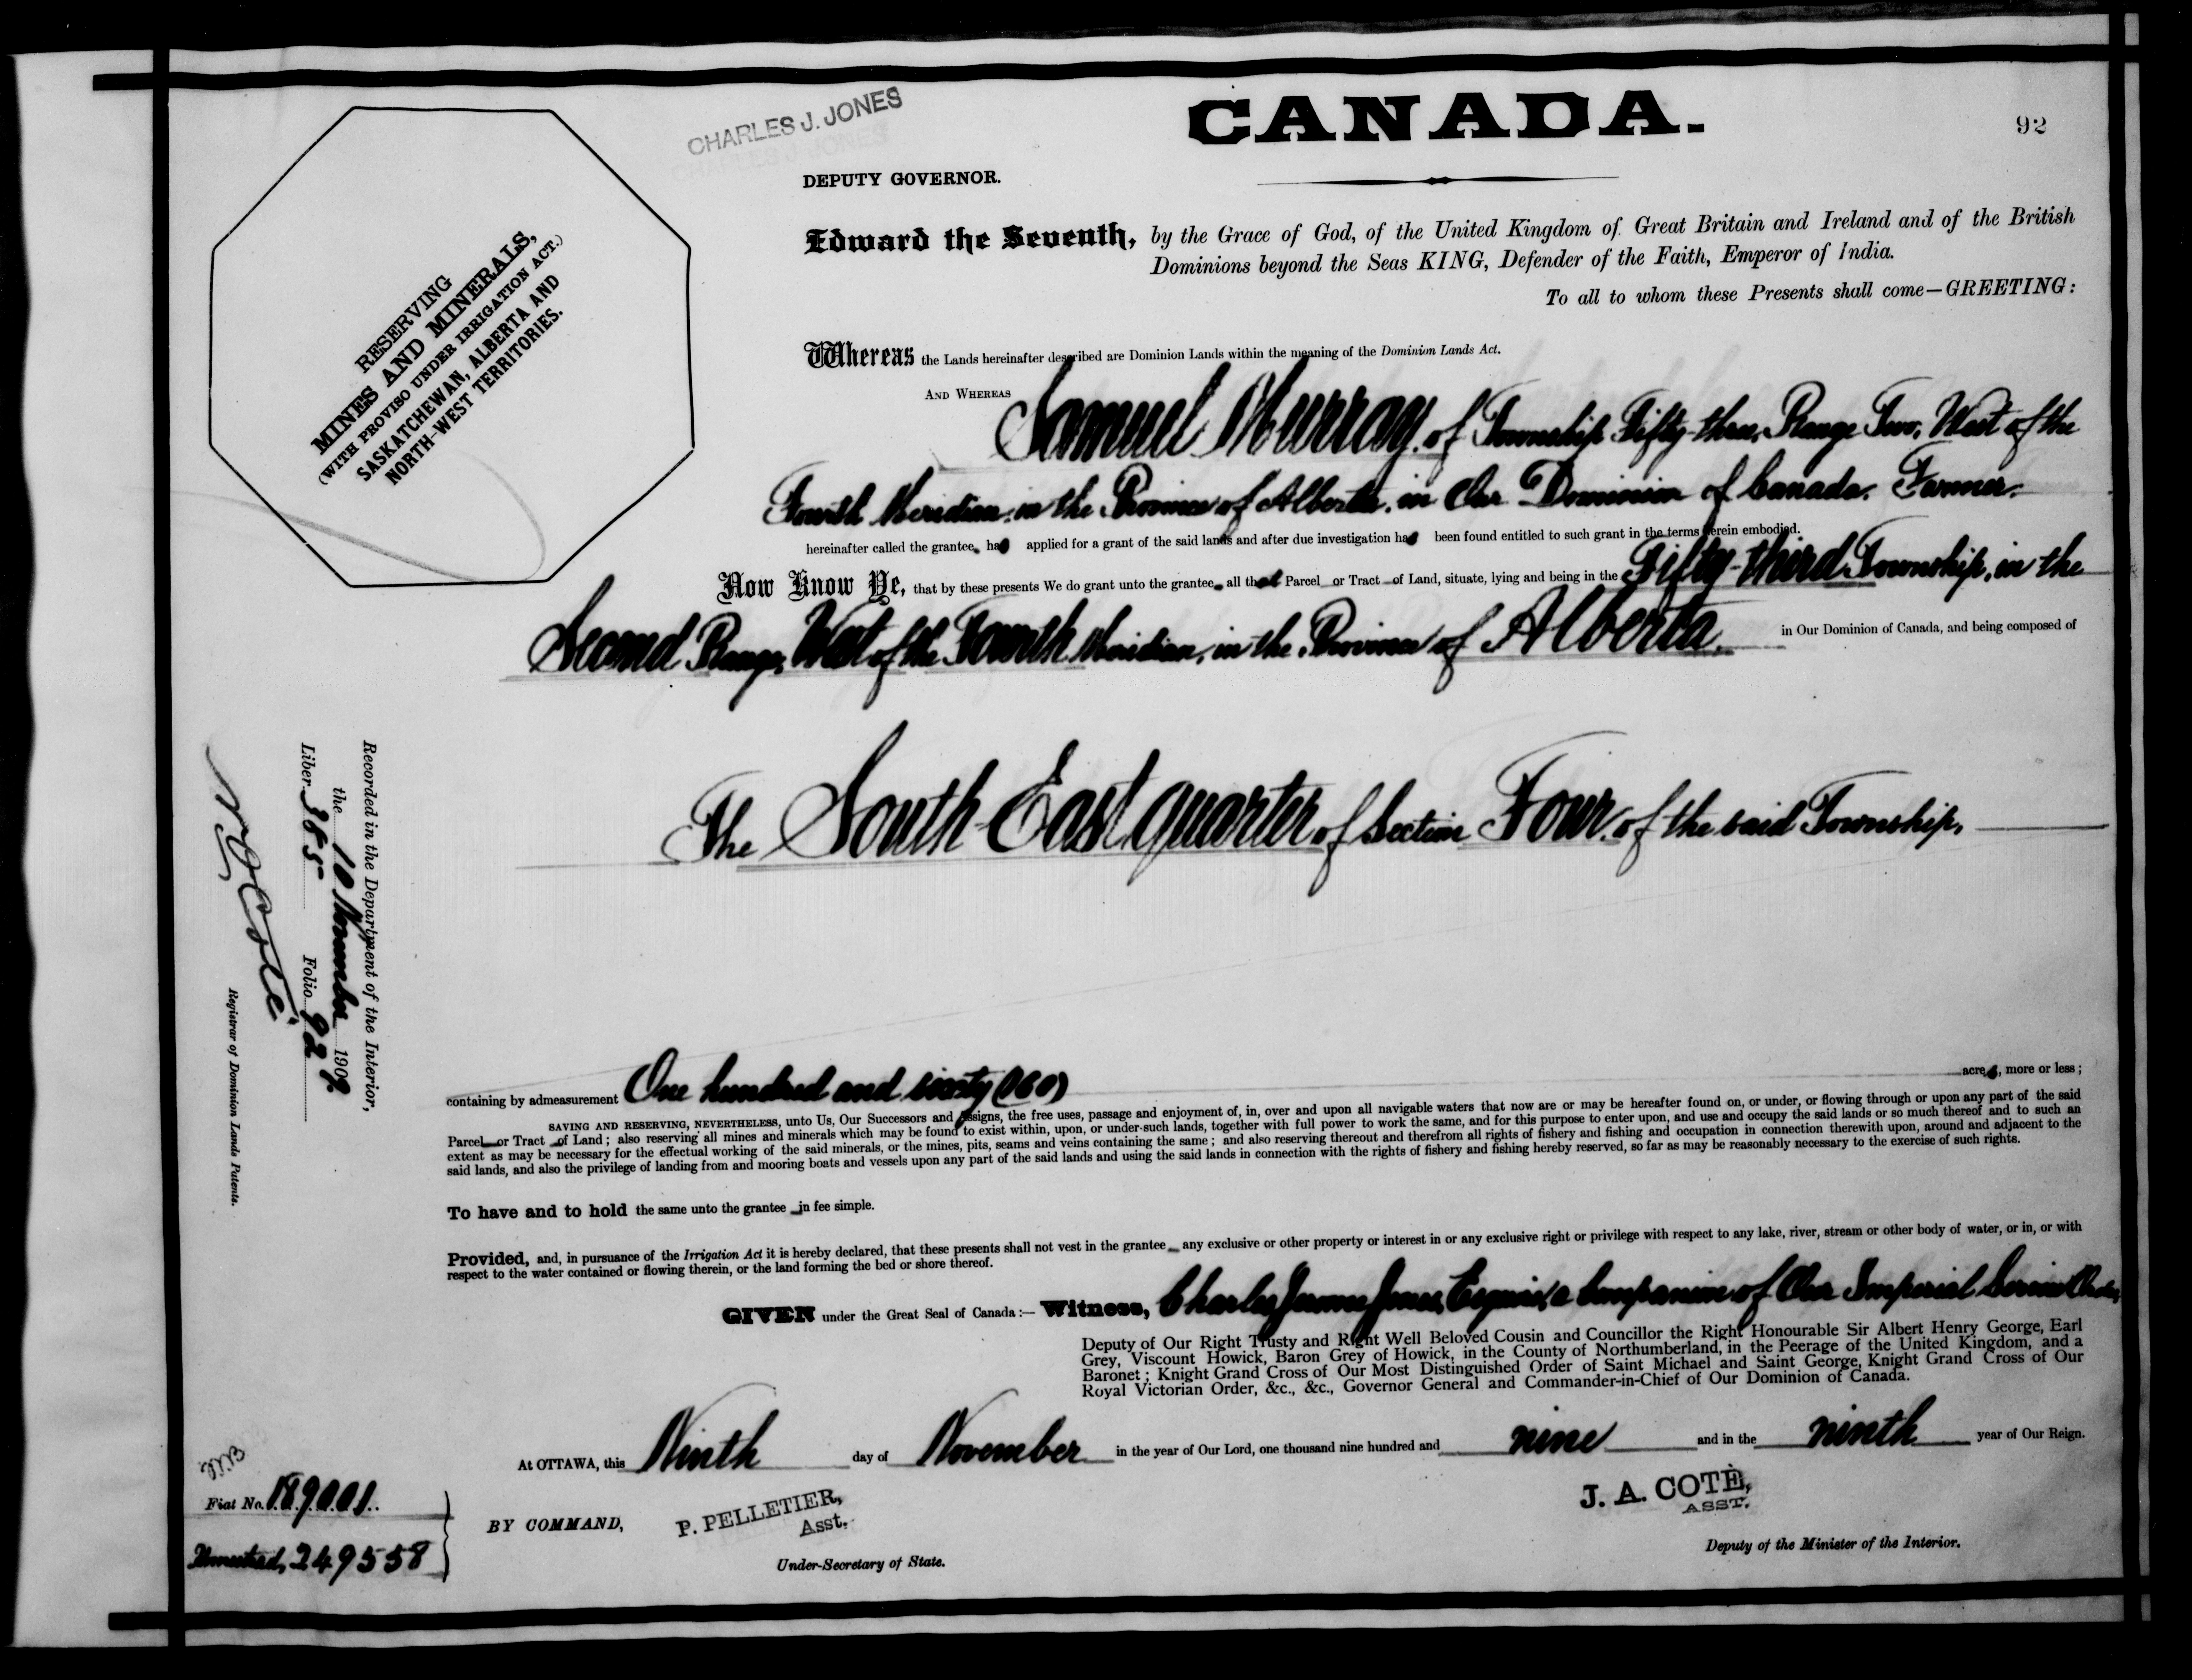 CHARLES J. JONES
CANADA.
92
DEPUTY GOVERNOR.
Edward the Seventh, by the Grace of God, of the United Kingdom of Great Britain and Ireland and of the British
Dominions beyond the Seas KING, Defender of the Faith, Emperor of India.
To all to whom these Presents shall come—GREETING:
RESERVING
MINES AND MINERALS,
(WITH PROVISO UNDER IRRIGATION ACT.)
SASKATCHEWAN, ALBERTA AND
NORTH-WEST TERRITORIES.
Whereas the Lands hereinafter described are Dominion Lands within the meaning of the Dominion Lands Act.
AND WHEREAS Samuel Murray, of Township Fifty-three, Range Two, West of the
Fourth Meridian, in the Province of Alberta, in Our Dominion of Canada, Farmer,
hereinafter called the grantee, has applied for a grant of the said lands and after due investigation has been found entitled to such grant in the terms herein embodied.
Now Know Ye, that by these presents We do grant unto the grantee all that Parcel or Tract of Land, situate, lying and being in the Fifty-third Township, in the
Second Range, West of the Fourth Meridian, in the Province of Alberta, in Our Dominion of Canada, and being composed of
The South East quarter of Section Four, of the said Township,
Recorded in the Department of the Interior,
the 10 November 1909
Liber 365 Folio 92
N O Coté
Registrar of Dominion Lands Patents.
containing by admeasurement One hundred and sixty (160) acres, more or less;
SAVING AND RESERVING, NEVERTHELESS, unto Us, Our Successors and Assigns, the free uses, passage and enjoyment of, in, over and upon all navigable waters that now are or may be hereafter found on, or under, or flowing through or upon any part of the said
Parcel or Tract of Land; also reserving all mines and minerals which may be found to exist within, upon, or under such lands, together with full power to work the same, and for this purpose to enter upon, and use and occupy the said lands or so much thereof and to such an
extent as may be necessary for the effectual working of the said minerals, or the mines, pits, seams and veins containing the same; and also reserving thereout and therefrom all rights of fishery and fishing and occupation in connection therewith upon, around and adjacent to the
said lands, and also the privilege of landing from and mooring boats and vessels upon any part of the said lands and using the said lands in connection with the rights of fishery and fishing hereby reserved, so far as may be reasonably necessary to the exercise of such rights.
To have and to hold the same unto the grantee in fee simple.
Provided, and, in pursuance of the Irrigation Act it is hereby declared, that these presents shall not vest in the grantee any exclusive or other property or interest in or any exclusive right or privilege with respect to any lake, river, stream or other body of water, or in, or with
respect to the water contained or flowing therein, or the land forming the bed or shore thereof.
GIVEN under the Great Seal of Canada:— Witness, Charles Jerome Jones, Esquire, a Companion of Our Imperial Service Order,
Deputy of Our Right Trusty and Right Well Beloved Cousin and Councillor the Right Honourable Sir Albert Henry George, Earl
Grey, Viscount Howick, Baron Grey of Howick, in the County of Northumberland, in the Peerage of the United Kingdom, and a
Baronet; Knight Grand Cross of Our Most Distinguished Order of Saint Michael and Saint George, Knight Grand Cross of Our
Royal Victorian Order, &c., &c., Governor General and Commander-in-Chief of Our Dominion of Canada.
At OTTAWA, this Ninth day of November in the year of Our Lord, one thousand nine hundred and nine and in the ninth year of Our Reign.
Fiat No. 189001.
Homestead, 249558
BY COMMAND,
P. PELLETIER,
Asst.
Under-Secretary of State.
J. A. COTÈ,
ASST.
Deputy of the Minister of the Interior.